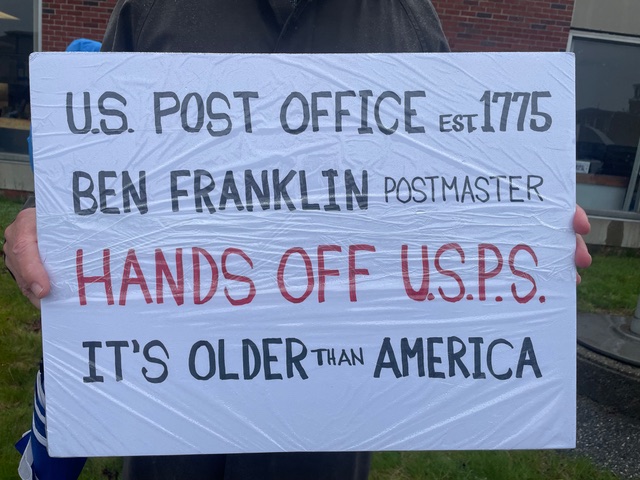 U.S. POST OFFICE EST. 1775
BEN FRANKLIN POSTMASTER
HANDS OFF U.S.P.S.
IT'S OLDER THAN AMERICA